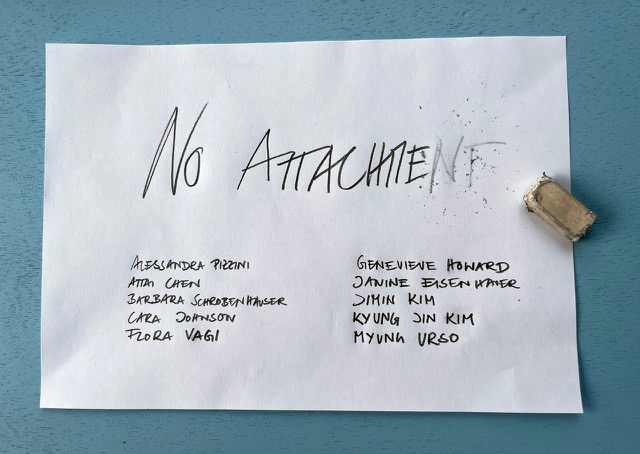 No ATTACHMENT
ALESSANDRA PIZZINI
ATTAI CHEN
BARBARA SCHROBENHAUSER
CARA JOHNSON
FLORA VAGI
GENEVIEVE HOWARD
JANINE EISENHAUER
JIMIN KIM
KYUNG JIN KIM
MYUNG URSO